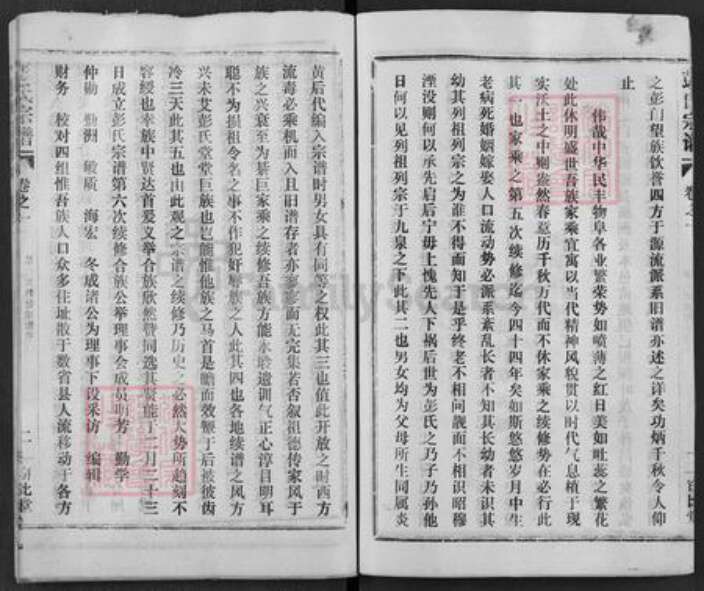 之彭门望族饮誉四方于源流派系旧谱亦述之详矣功炳千秋令人仰
止
伟哉中华民丰物阜各业繁荣势如喷薄之红日美如吐蕊之繁花
处此休明盛世吾族家乘宜寓以当代精神风貌贯以时代气息植于现
实沃土之中则盎然春意历千秋万代而不休家乘之续修势在必行此
其一也家乘之第五次续修迄今四十四年矣如斯悠悠岁月中生
老病死婚姻嫁娶人口流动势必派系紊乱长者不知其长幼者未识其
幼其列祖列宗之为谁不得而知于是乎终老不相问觌面不相识昭穆
湮没则何以承先启后宁毋上愧先人下祸后世为彭氏之乃子乃孙他
日何以见列祖列宗于九泉之下此其二也男女均为父母所生同属炎
黄后代编入宗谱时男女具有同等之权此其三也值此开放之时西方
流毒必乘机而入且旧谱存者亦寥寥而无完集若否叙祖德传家风于
族之兴衰至为綦巨家乘之续修吾族方能永聆遗训气正心淳目明耳
聪不为损祖令名之事不作犯奸辱族之人此其四也各地续谱之风方
兴未艾彭氏堂堂巨族也岂能惟他族之马首是瞻而效颦于后被彼齿
冷三天此其五也由此观之宗谱之续修乃历史之必然大势所迫刻不
容缓也幸族中贤达首爰义举合族欣然赞同选其贤能于二月二十三
日成立彭氏宗谱第六次续修合族公举理事会成员明芳 勤学
仲勋 勋洲 敏质 海宏 冬成诸公为理事下设采访 编辑
财务 校对四组惟吾族人口众多住址散于数省县人流移动于各方
氏宗谱
卷之一
二
FamilySearch